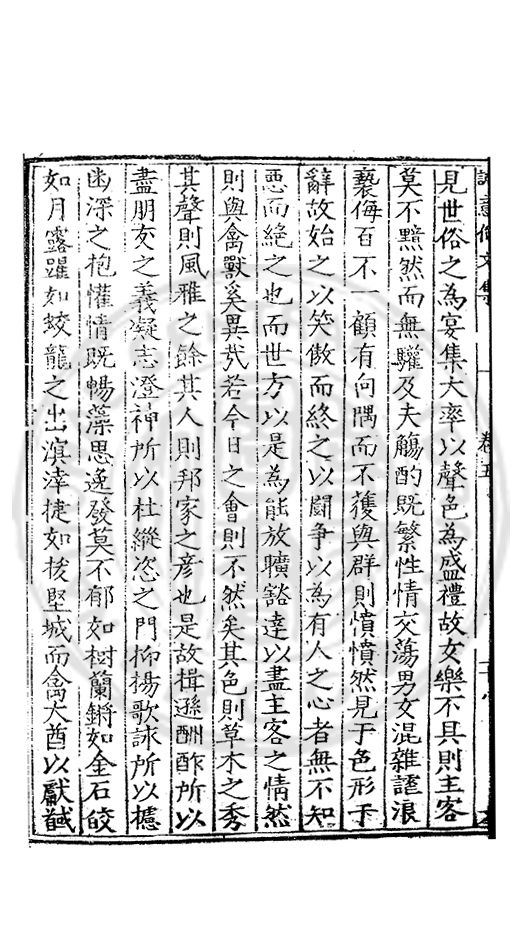 見世俗之為宴集大率以聲色為盛禮故女樂不具則主客
莫不黯然而無驩及夫觴酌既繁性情交蕩男女混雜謔浪
褻侮百不一顧有向隅而不獲與群則憤憤然見于色形于
辭故始之以笑傲而終之以鬭争以為有人之心者無不知
惡而絶之也而世方以是為能放曠豁達以盡主客之情然
則與禽獸奚異㢤若今日之會則不然矣其色則草木之秀
其聲則風雅之餘其人則邦家之彥也是故揖遜酬酢所以
盡朋友之義凝志澄神所以杜縱恣之門抑揚歌詠所以攄
幽深之抱懽情既暢藻思逸發莫不郁如樹蘭鏘如金石皎
如月露躍如蛟龍之出滇涬捷如拔堅城而禽大酋以獻馘
文集
卷五